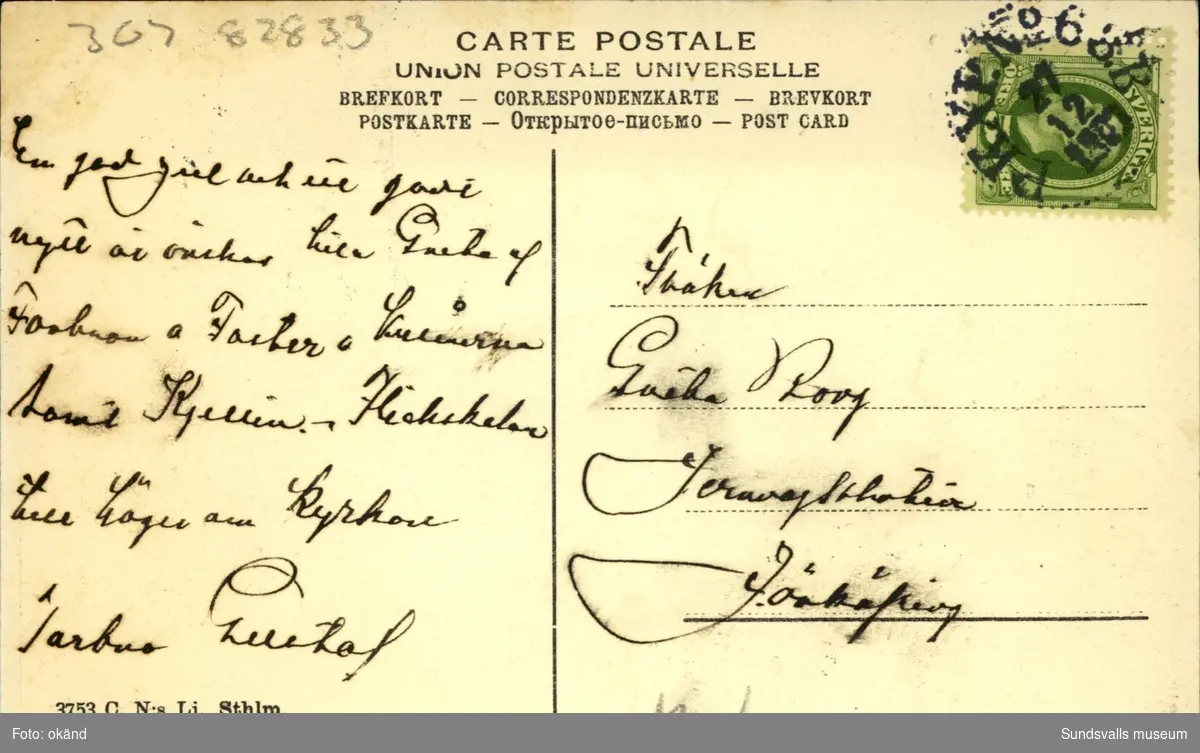 307 82833
CARTE POSTALE
UNION POSTALE UNIVERSELLE
BREFKORT — CORRESPONDENZKARTE — BREVKORT
POSTKARTE — Открытое-письмо — POST CARD
En god jul och ett godt
nytt år önskas lilla Greta af
Farbror o Faster o
samt Kjellin
till höger om kyrkan
farbror Gustaf
Fröken
Greta Roog
Jernvägsstation
Jönköping
PKXP. Nº 6
27
12
SVERIGE
ÖRE
3753 C. N:s Lj. Sthlm.
Foto: okänd
Sundsvalls museum